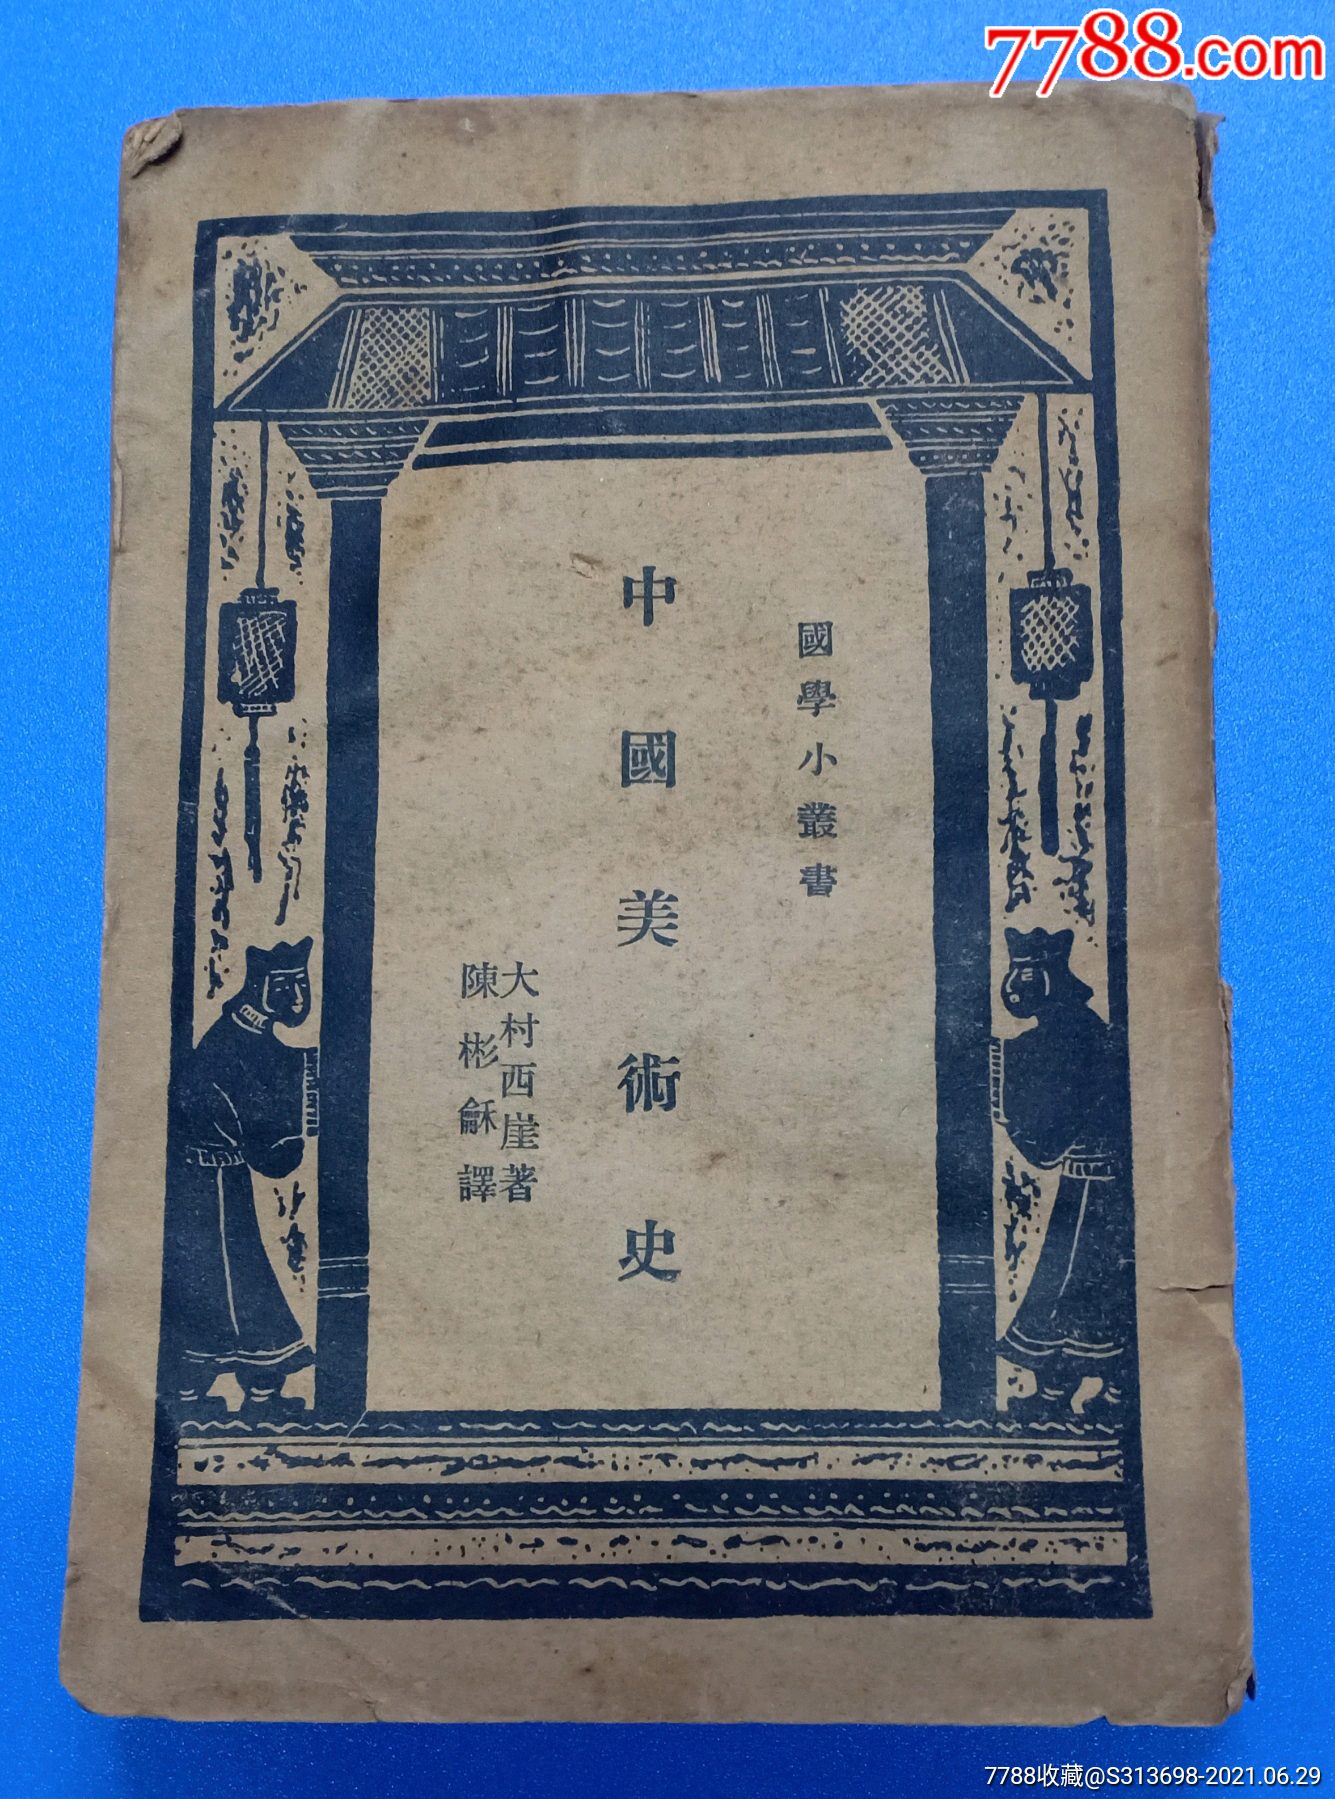 7788.com
國學小叢書
中國美術史
大村西崖著
陳彬龢譯
7788收藏@S313698-2021.06.29